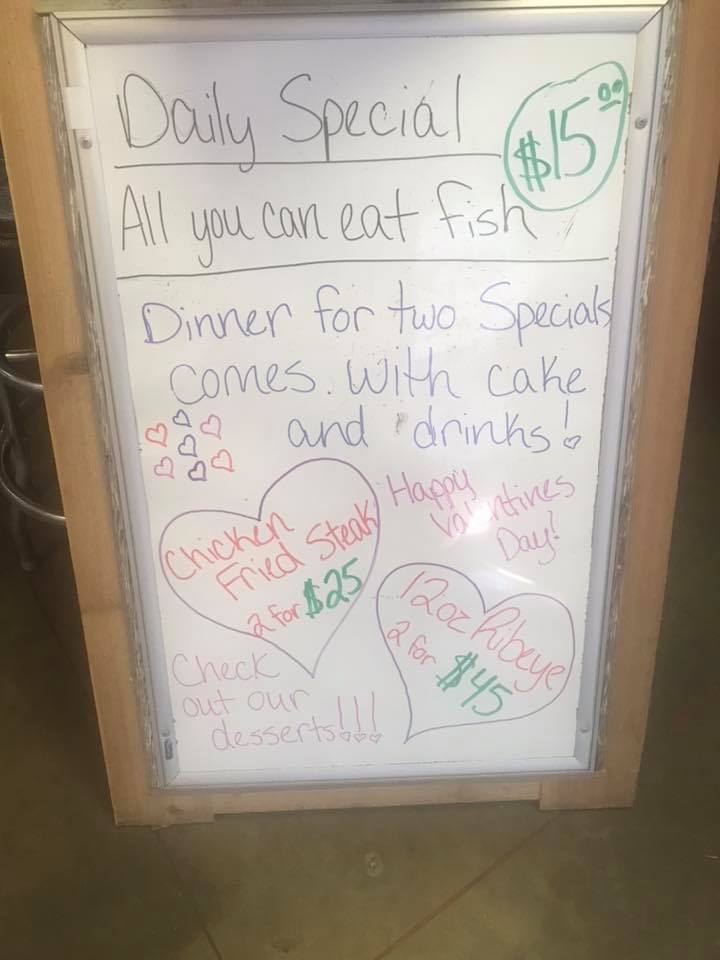 Daily Special
$15.00
All you can eat fish
Dinner for two Specials
comes. with cake
and drinks!
Happy
Valentines
Day!
Chicken
Fried Steak
2 for $25
12oz Ribeye
2 for $45
Check
out our
desserts!!!